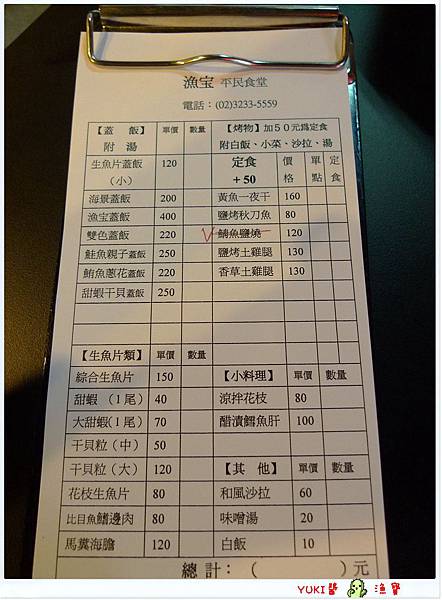 漁宝 平民食堂
電話：(02)3233-5559
【蓋 飯】 單價 數量
附 湯
生魚片蓋飯 120
（小）
海景蓋飯 200
漁宝蓋飯 400
雙色蓋飯 220
鮭魚親子蓋飯 250
鮪魚蔥花蓋飯 220
甜蝦干貝蓋飯 250
【烤物】加５０元爲定食
附白飯、小菜、沙拉、湯
定食 價 單 定
+50 格 點 食
黃魚一夜干 160
鹽烤秋刀魚 80
鯖魚鹽燒 120
鹽烤土雞腿 130
香草土雞腿 130
【生魚片類】 單價 數量
綜合生魚片 150
甜蝦 （1尾） 40
大甜蝦（1尾） 70
干貝粒（中） 50
干貝粒（大） 120
花枝生魚片 80
比目魚鰭邊肉 80
馬糞海膽 120
【小料理】 單價 數量
涼拌花枝 80
醋漬鱈魚肝 100
【其 他】 單價 數量
和風沙拉 60
味噌湯 20
白飯 10
總 計：（ ）元
YUKI醬 漁寶